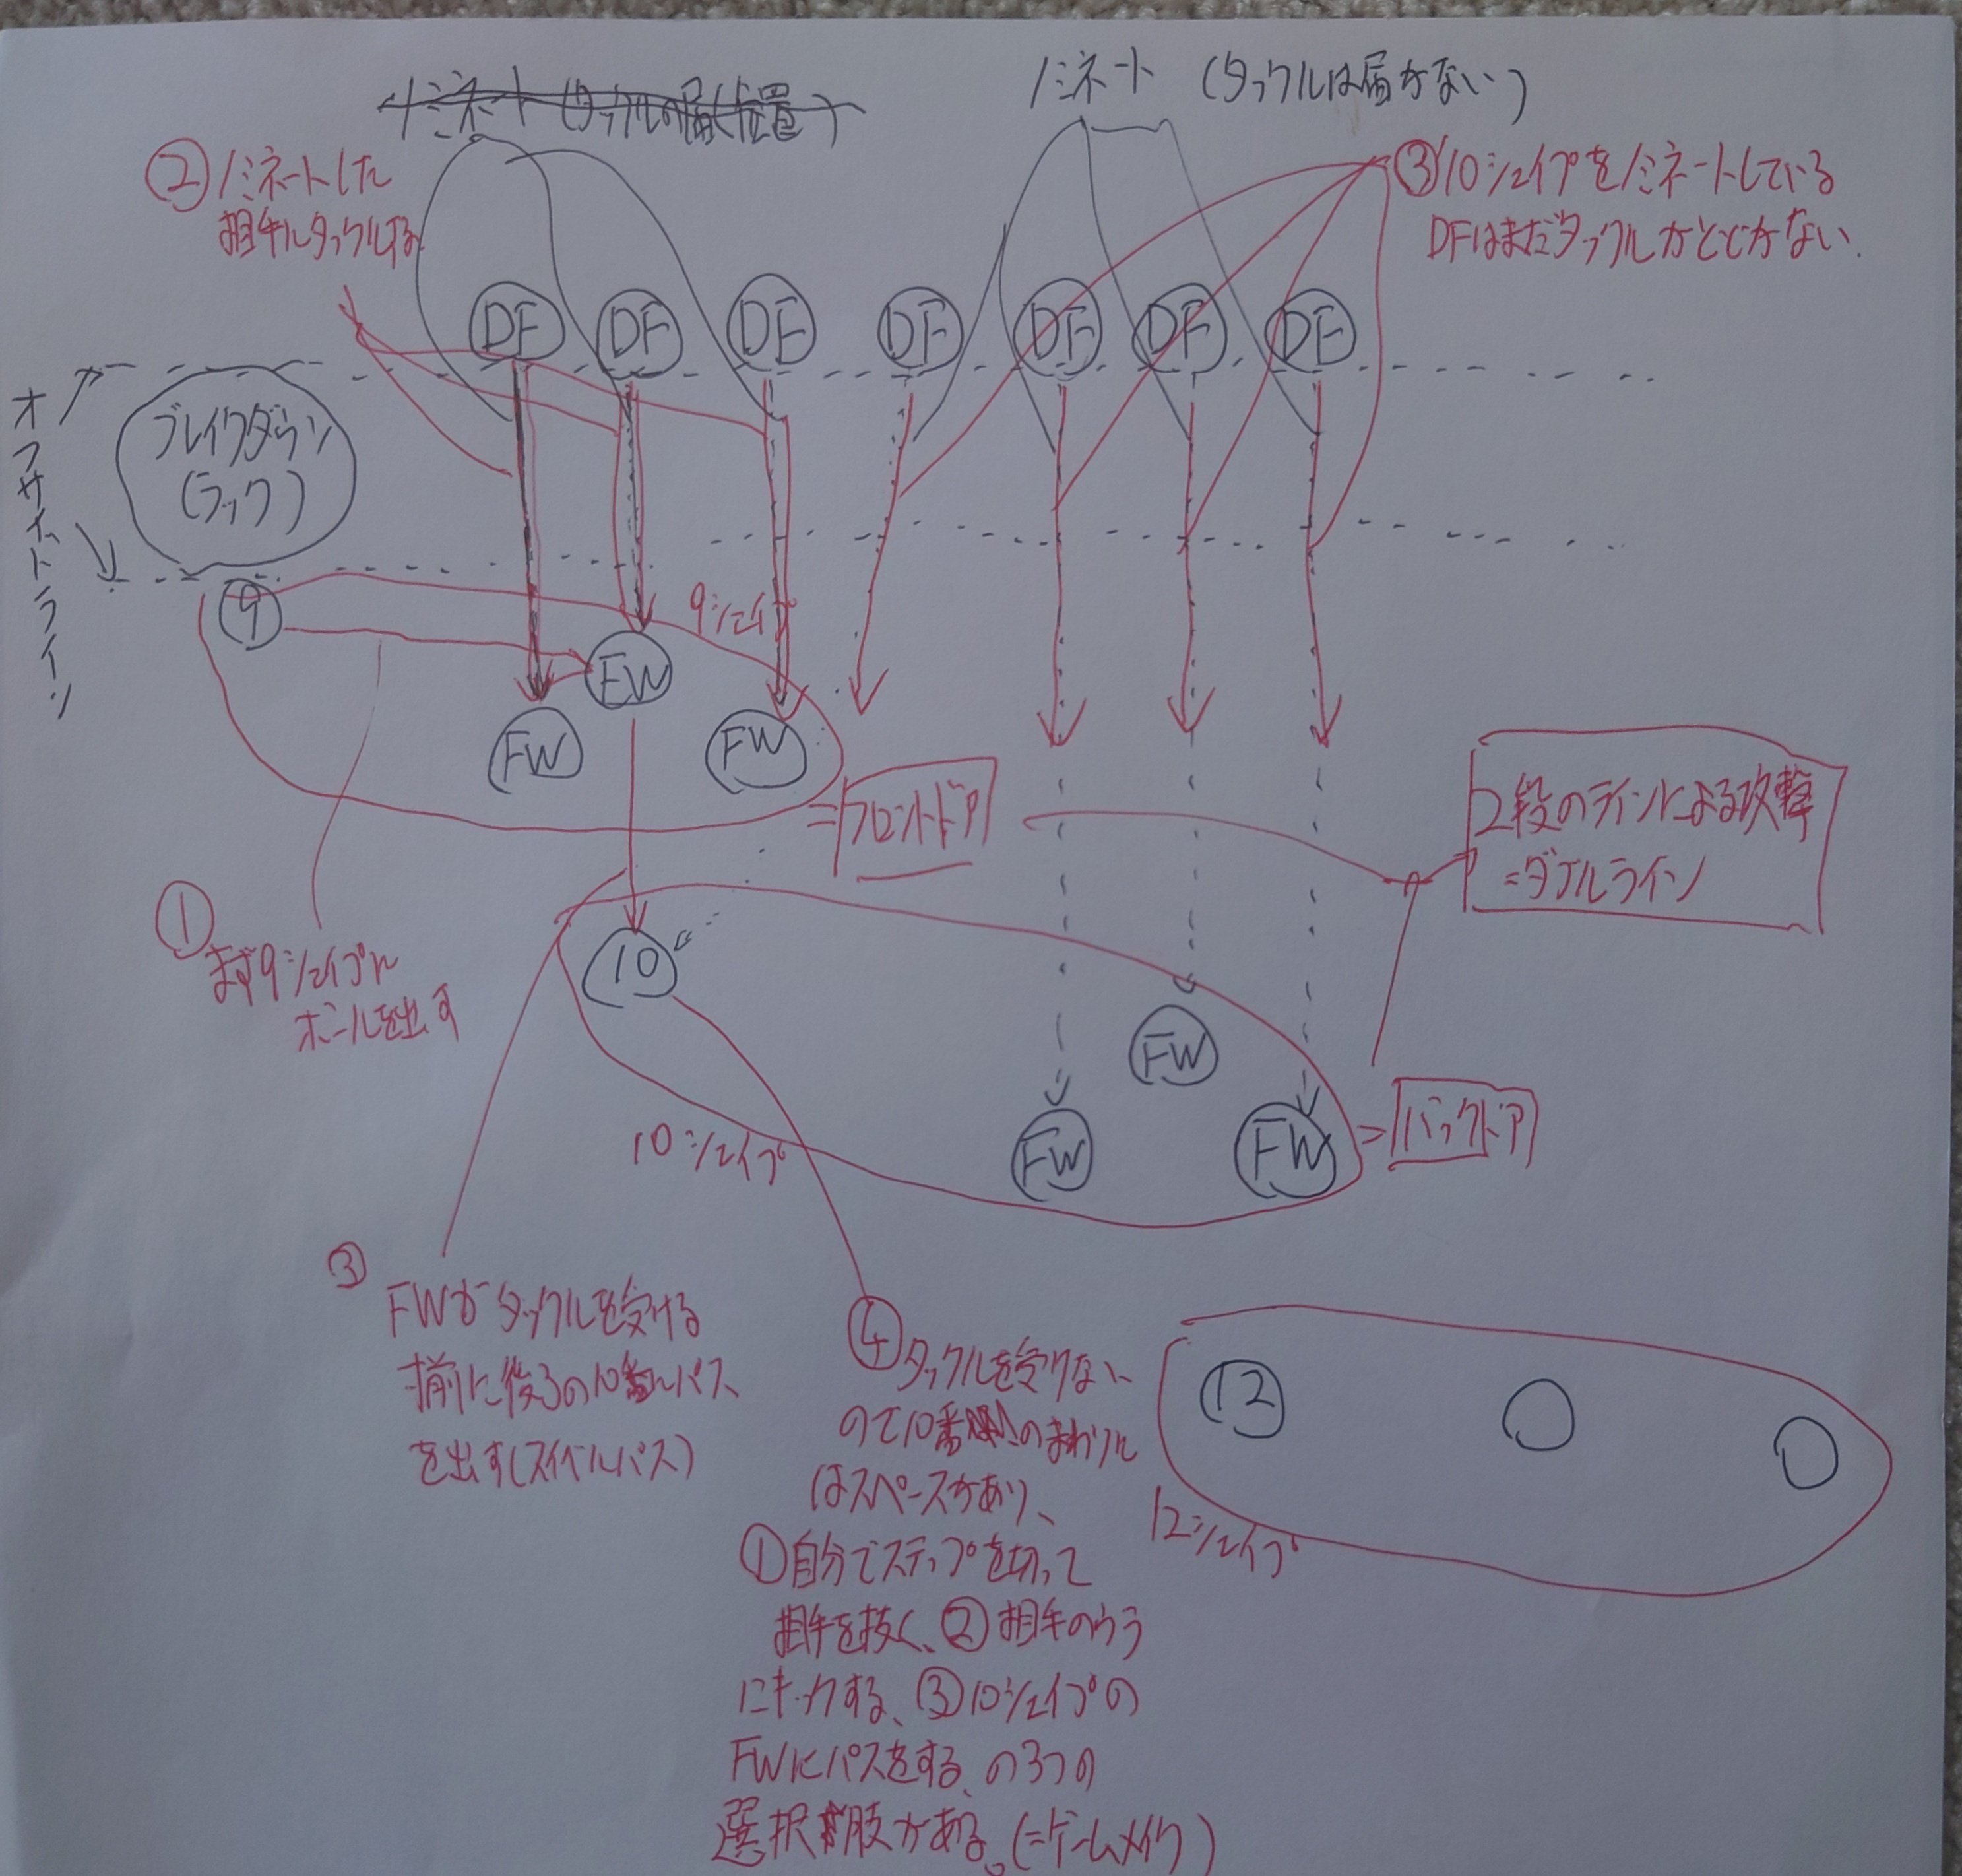 ノミネート（タックルの届く位置）
ノミネート（タックルは届かない）
②ノミネートした
相手にタックルする
③10シェイプをノミネートしている
DFはまだタックルがとどかない.
DF
DF
DF
DF
DF
DF
DF
オフサイドライン
ブレイクダウン
（ラック）
9
9シェイプ
FW
FW
FW
=フロントドア
2段のラインによる攻撃
=ダブルライン
①
まず9シェイプに
ボールを出す
10
FW
FW
FW
=バックドア
10シェイプ
③
FWがタックルを受ける
前に後ろの10番にパス
を出す（スイベルパス）
④タックルを受けない
ので10番のまわりに
はスペースがあり、
①自分でステップを切って
相手を抜く、②相手のウラ
にキックする、③10シェイプの
FWにパスをする、の3つの
選択肢がある。（=ゲームメイク）
12
12シェイプ